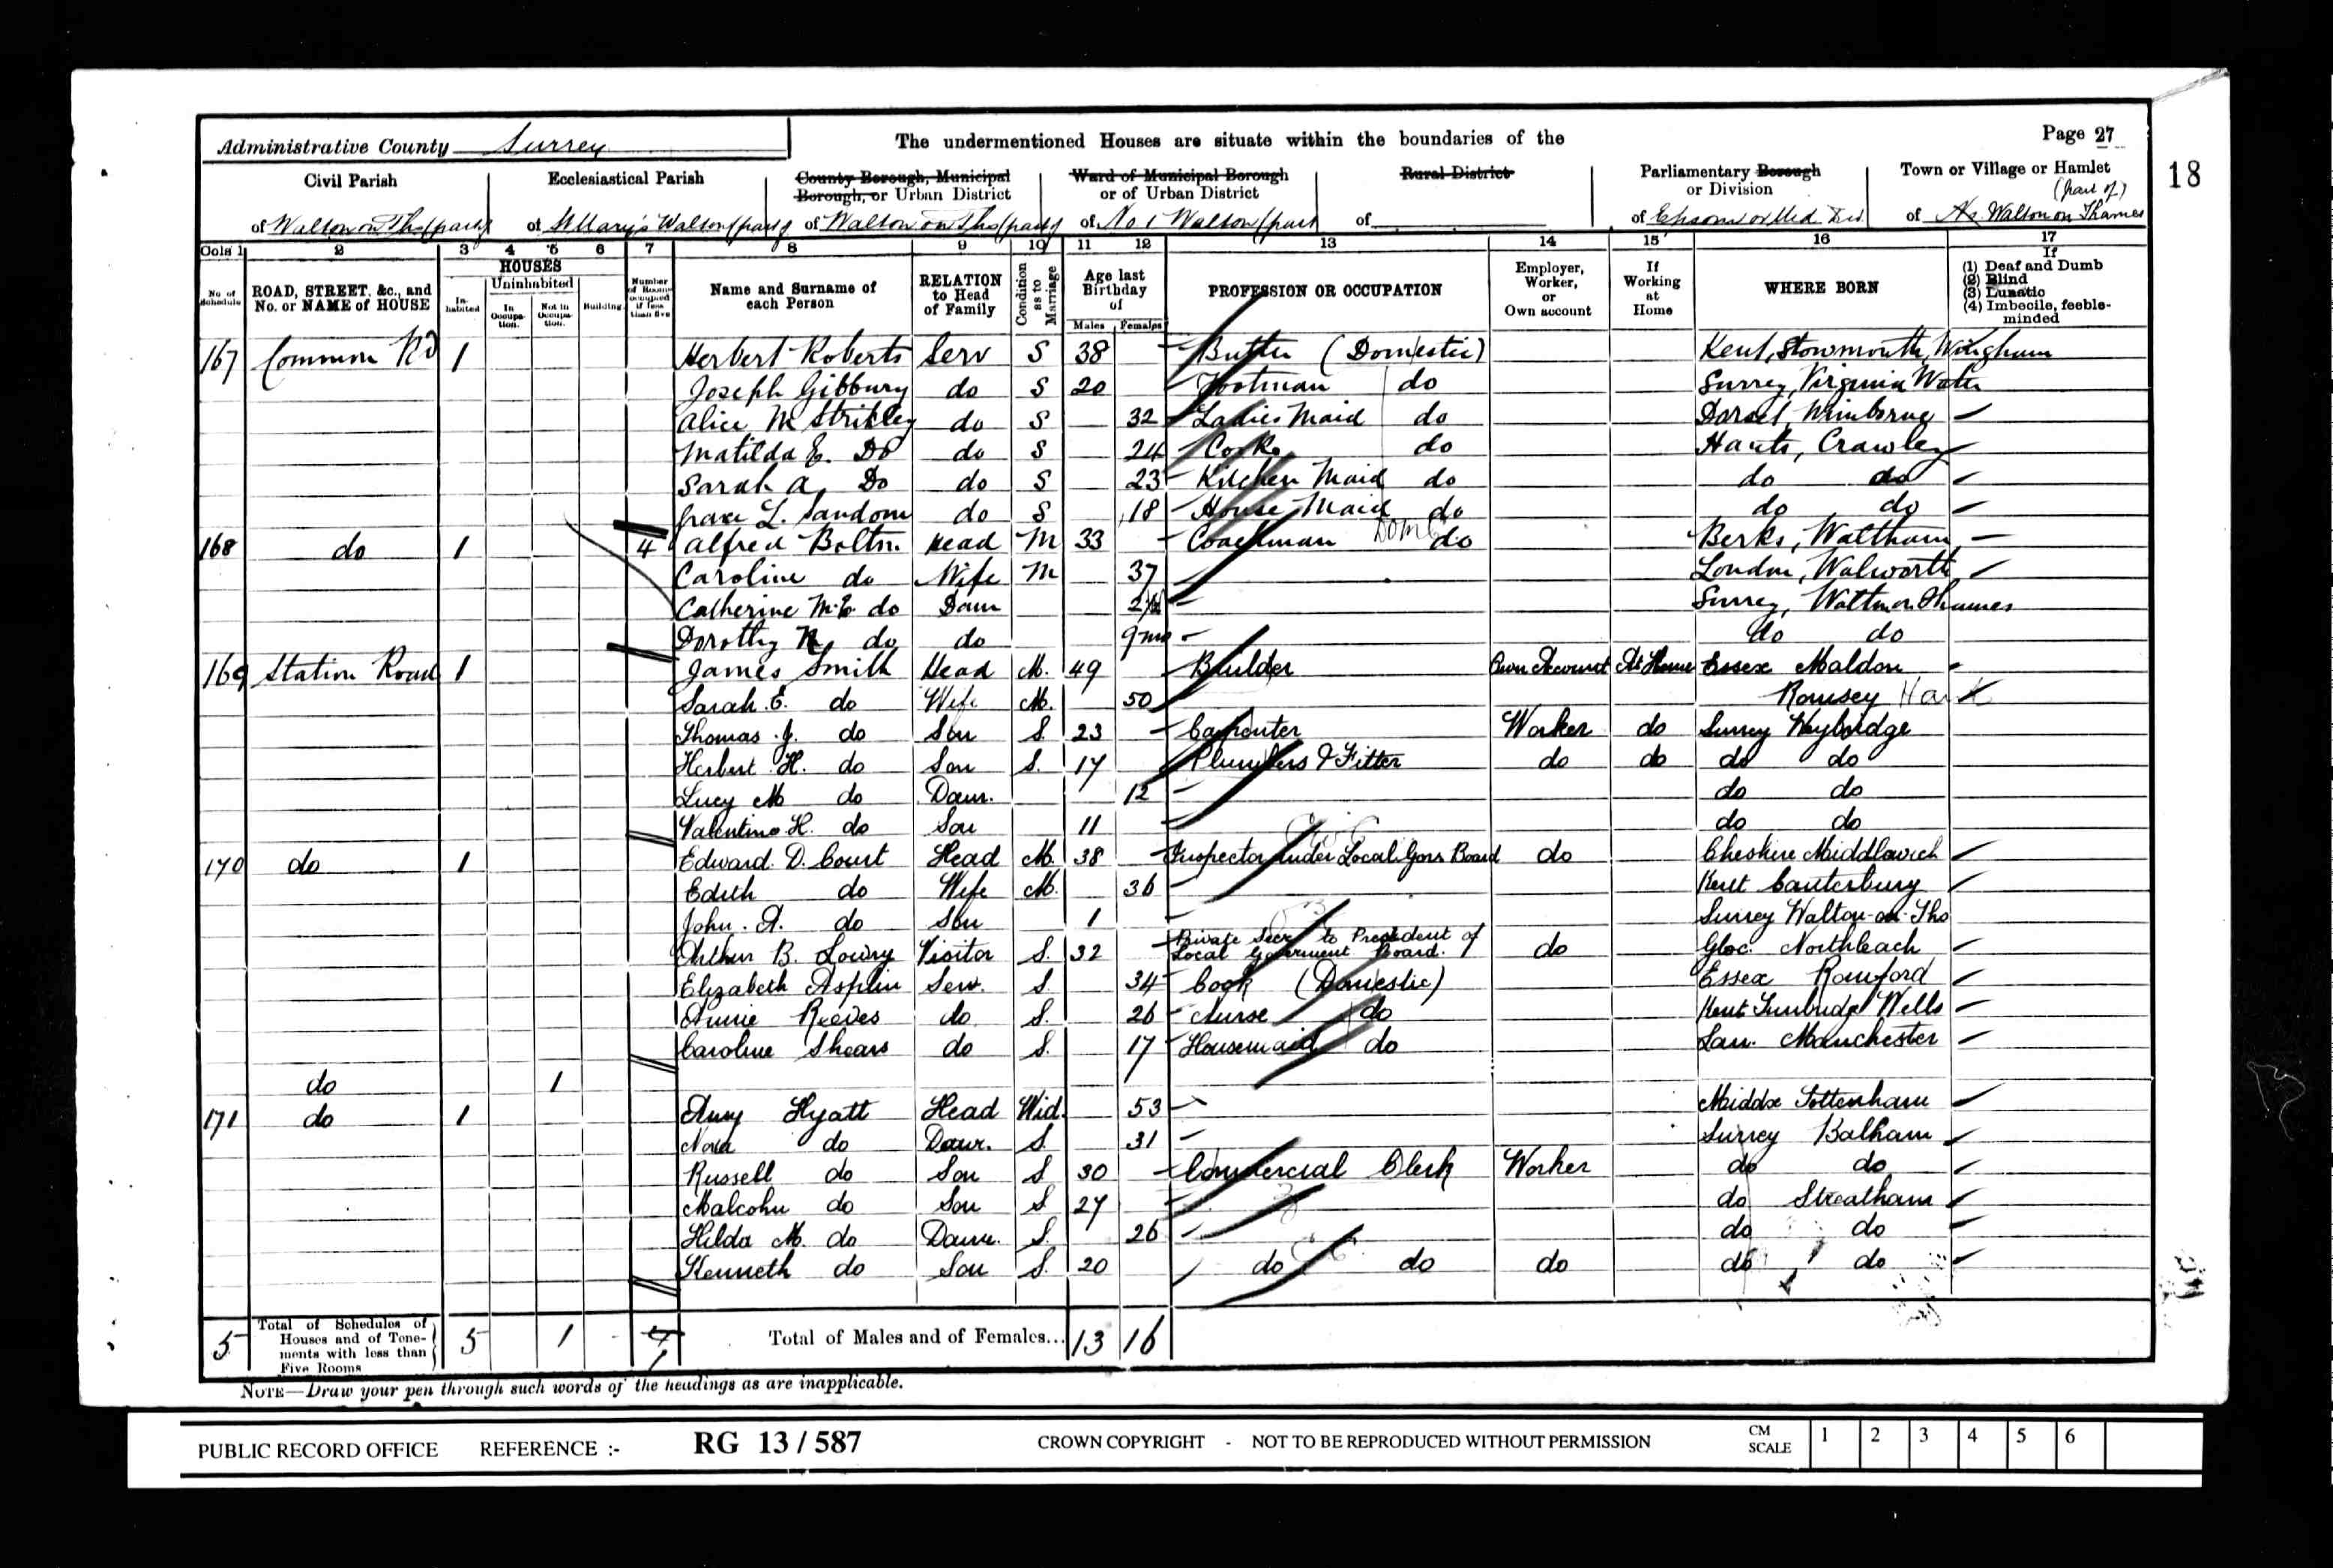 Administrative County Surrey
The undermentioned Houses are situate within the boundaries of the
Page 27
18
Civil Parish
Ecclesiastical Parish
County Borough, Municipal Borough, or Urban District
Ward of Municipal Borough or of Urban District
Rural District
Parliamentary Borough or Division
Town or Village or Hamlet
(part of)
of Walton on Ths (part)
of St Mary's Walton (part)
of Walton on Ths (part)
of No 1 Walton (part
of
of Epsom or Mid. Div.
of Walton on Thames
Cols 1 2 3 4 5 6 7 8 9 10 11 12 13 14 15 16 17
No of Schedule
ROAD, STREET, &c., and No. or NAME of HOUSE
HOUSES
Inhabited
Uninhabited
In Occupation.
Not in Occupation.
Building
Number of Rooms occupied if less than five
Name and Surname of each Person
RELATION to Head of Family
Condition as to Marriage
Age last Birthday of
Males Females
PROFESSION OR OCCUPATION
Employer, Worker, or Own account
If Working at Home
WHERE BORN
If
(1) Deaf and Dumb
(2) Blind
(3) Lunatic
(4) Imbecile, feeble-minded
167 Common Rd 1 Herbert Roberts Serv S 38 Butler (Domestic) Kent, Stowmouth, Wingham
Joseph Gibbury do S 20 Footman do Surrey, Virginia Water
Alice M Strikley do S 32 Ladies Maid do Dorset, Wimborne
Matilda E. Do do S 24 Cook do Hants, Crawley
Sarah A. Do do S 23 Kitchen Maid do do do
Grace L. Sandom do S 18 House Maid do do do
168 do 1 4 Alfred Bolton Head M 33 Coachman Dom do Berks, Waltham
Caroline do Wife M 37 London, Walworth
Catherine M. E. do Daur 2 Surrey, Walton on Thames
Dorothy do do 9 mo do do
169 Station Road 1 James Smith Head M. 49 Builder Own Account At Home Essex Maldon
Sarah. E. do Wife M. 50 Romsey
Thomas. J. do Son S. 23 Carpenter Worker do Surrey Weybridge
Herbert. H. do Son S. 17 Plumbers & Fitter do do do do
Lucy M do Daur. 12 do do
Valentine H. do Son 11 do do
170 do 1 Edward. D. Court Head M. 38 Inspector under Local Govn Board do Cheshire Middlewich
Edith do Wife M. 36 Kent Canterbury
John. A. do Son 1 Surrey Walton-on-Ths
Arthur B. Lowry Visitor S. 32 Private Secr. to President of Local Government Board. do Gloc. Northleach
Elizabeth Asplin Serv. S. 34 Cook (Domestic) Essex Romford
Annie Reeves do S. 26 Nurse do Kent Tunbridge Wells
Caroline Shears do S. 17 Housemaid do Lan. Manchester
do 1
171 do 1 Amy Hyatt Head Wid. 53 Middx Tottenham
Nora do Daur. S. 31 Surrey Balham
Russell do Son S 30 Commercial Clerk Worker do do
Malcolm do Son S 27 do Streatham
Hilda M. do Daur. S. 26 do do
Kenneth do Son S. 20 do do do do do
5 Total of Schedules of Houses and of Tenements with less than Five Rooms 5 1 1 Total of Males and of Females... 13 16
NOTE—Draw your pen through such words of the headings as are inapplicable.
PUBLIC RECORD OFFICE REFERENCE :- RG 13 / 587 CROWN COPYRIGHT - NOT TO BE REPRODUCED WITHOUT PERMISSION CM SCALE 1 2 3 4 5 6